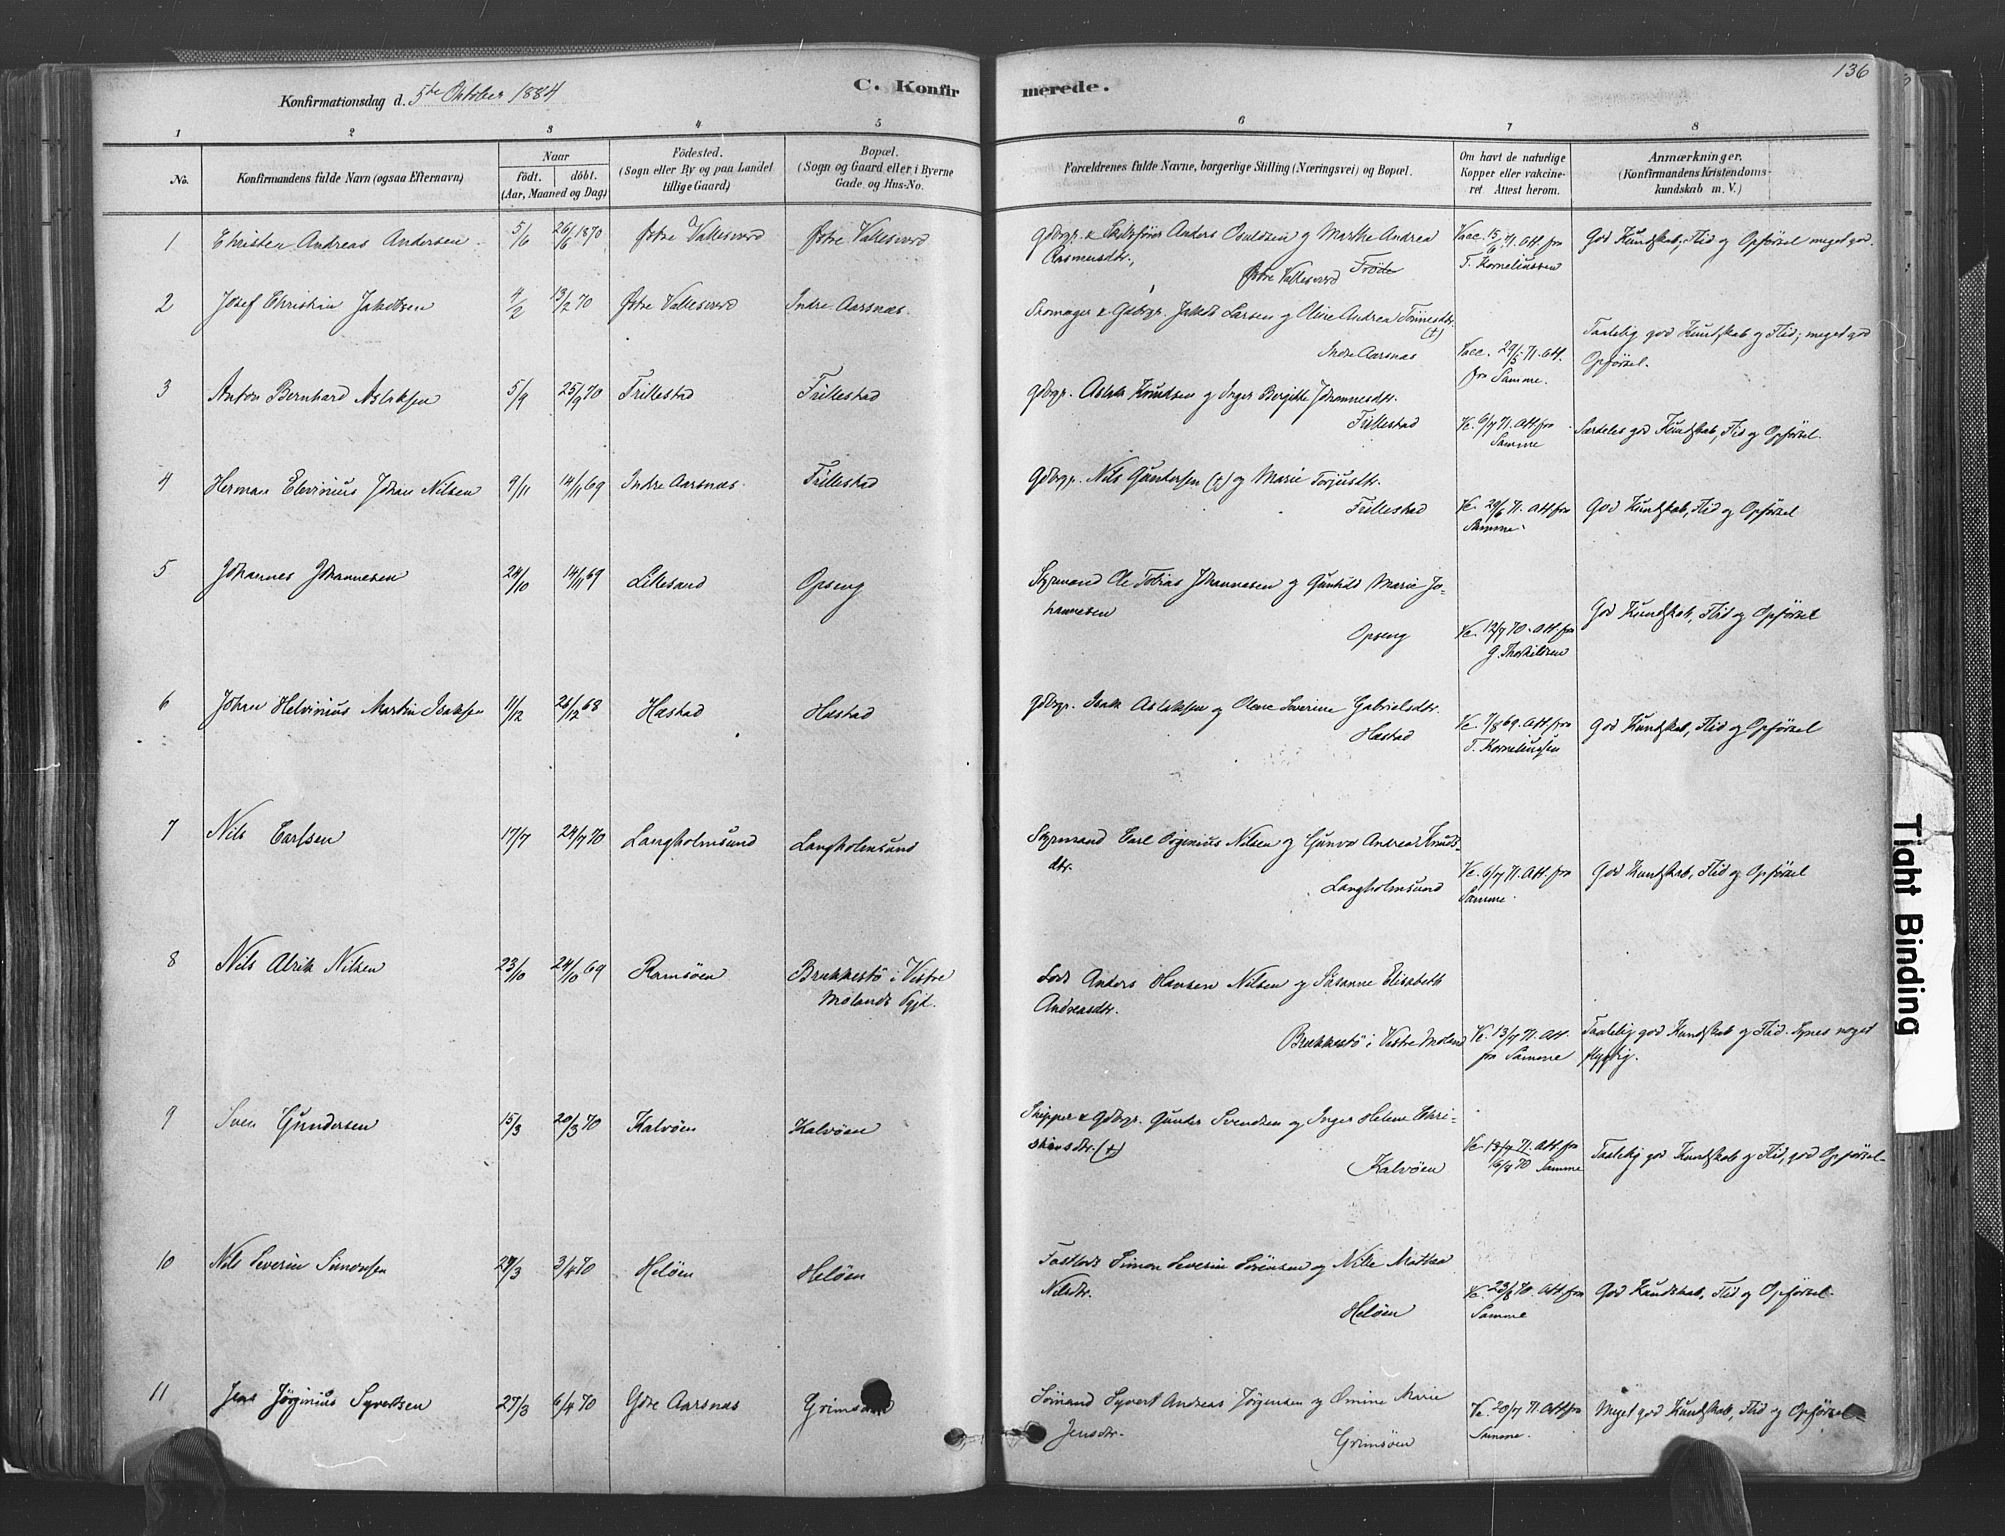 136
Konfirmationsdag d. 5te Oktober 1884
C. Konfirmerede.
1 2 3 4 5 6 7 8
No.
Konfirmandens fulde Navn (ogsaa Efternavn)
Naar
født. døbt.
(Aar, Maaned og Dag)
Fødested.
(Sogn eller By og paa Landet
tillige Gaard)
Bopæl.
(Sogn og Gaard eller i Byerne
Gade og Hus-No.
Forældrenes fulde Navne, borgerlige Stilling (Næringsvei) og Bopæl.
Om havt de naturlige
Kopper eller vakcine-
ret Attest herom.
Anmærkninger.
(Konfirmandens Kristendoms-
kundskab m. V.)
1 Christen Andreas Andersen 5/6 26/6 1870 Østre Vallesverd Østre Vallesverd
Gdbrgr. & Anders Osuldsen og Marthe Andrea
Rasmusdtr.,
Østre Vallesverd
Vacc. 15/6 71. Att fra
T. Korneliussen
God Kundskab, Flid og Opførsel meget god.
2 Josef Christian Jakobsen 4/2 13/2 70 Østre Vallesverd Indre Aarsnæs.
Skomager & Gdbrgr. Jakob Larsen og Oline Andrea Tønnesdtr.
(†)
Indre Aarsnæs
Vacc. 29/5 71. Att.
fra Samme.
Taalelig god Kundskab og Flid; meget god
Opførsel.
3 Anton Bernhard Aslaksen 5/9 25/9 70 Trillestad Trillestad
Gdbrgr. Aslak Knudsen og Inger Bergitte Johannesdtr.
Trillestad
Vc. 6/7 71. Att fra
Samme
Særdeles god Kundskab, Flid og Opførsel.
4 Herman Elevinius Johan Nilsen 9/11 14/11 69 Indre Aarsnæs. Trillestad
Gdbrgr. Nils Guntersen (†) og Marie Torjusdtr.
Trillestad
Vc. 29/6 71. Att fra
Samme.
God Kundskab, Flid og Opførsel
5 Johannes Johannesen 24/10 14/11 69 Lillesand Opseng
Styrmand Ole Tobias Johannesen og Gunhild Marie Jo-
hannesen
Opseng
Vc. 12/7 70. Att. fra
G. Thorkildsen
God Kundskab, Flid og Opførsel
6 Johan Helvinius Martin Isaksen 11/12 26/12 68 Hæstad Hæstad
Gdbrgr. Isak Aslaksen og Olene Severine Gabrielsdtr.
Hæstad
Vc. 7/8 69. Att fra
T. Korneliussen
God Kundskab, Flid og Opførsel
7 Nils Carlsen 17/7 24/7 70 Langholmsund Langholmsund
Styrmand Carl Nilsen og Gunvor Andrea Knuds-
dtr.
Langholmsund
Vc. 6/7 71. Att. fra
Samme.
God Kundskab, Flid og Opførsel
8 Nils Alrik Nilsen 23/10 24/10 69 Ramsøen Brækkestø i Vestre
Molands Pgjd.
Lods Anders Hansen Nilsen og Susanne Elisabeth
Andreasdtr.
Brækkestø i Vestre Moland
Vc. 13/9 71. Att.
fra Samme
Taalelig god Kundskab og Flid. Synes noget
flygtig.
9 Sven Gundersen 15/3 20/3 70 Kalvøen Kalvøen
Skipper & Gdbrgr. Gunder Svendsen og Inger Helene Chri-
stiansdtr. (†)
Kalvøen
Vc. 13/9 71. Att fra
16/8 70 Samme
Taalelig god Kundskab og Flid, god Opførsel.
10 Nils Severin Simonsen 27/3 3/4 70 Heløen Heløen
Fastlods Simon Severin Sørensen og Nille Mathea
Nilsdtr.
Heløen
Vc. 23/8 70. Att fra
Samme
God Kundskab, Flid og Opførsel.
11 Jens Jørginius Syvertsen 27/3 6/4 70 Ydre Aarsnæs Grimsøen
Sømand Syvert Andreas Jørgensen og Omine Marie
Jensdtr.
Grimsøen
Vc. 20/7 71. Att fra
Samme.
Meget god Kundskab, Flid og Opførsel.
Tight Binding